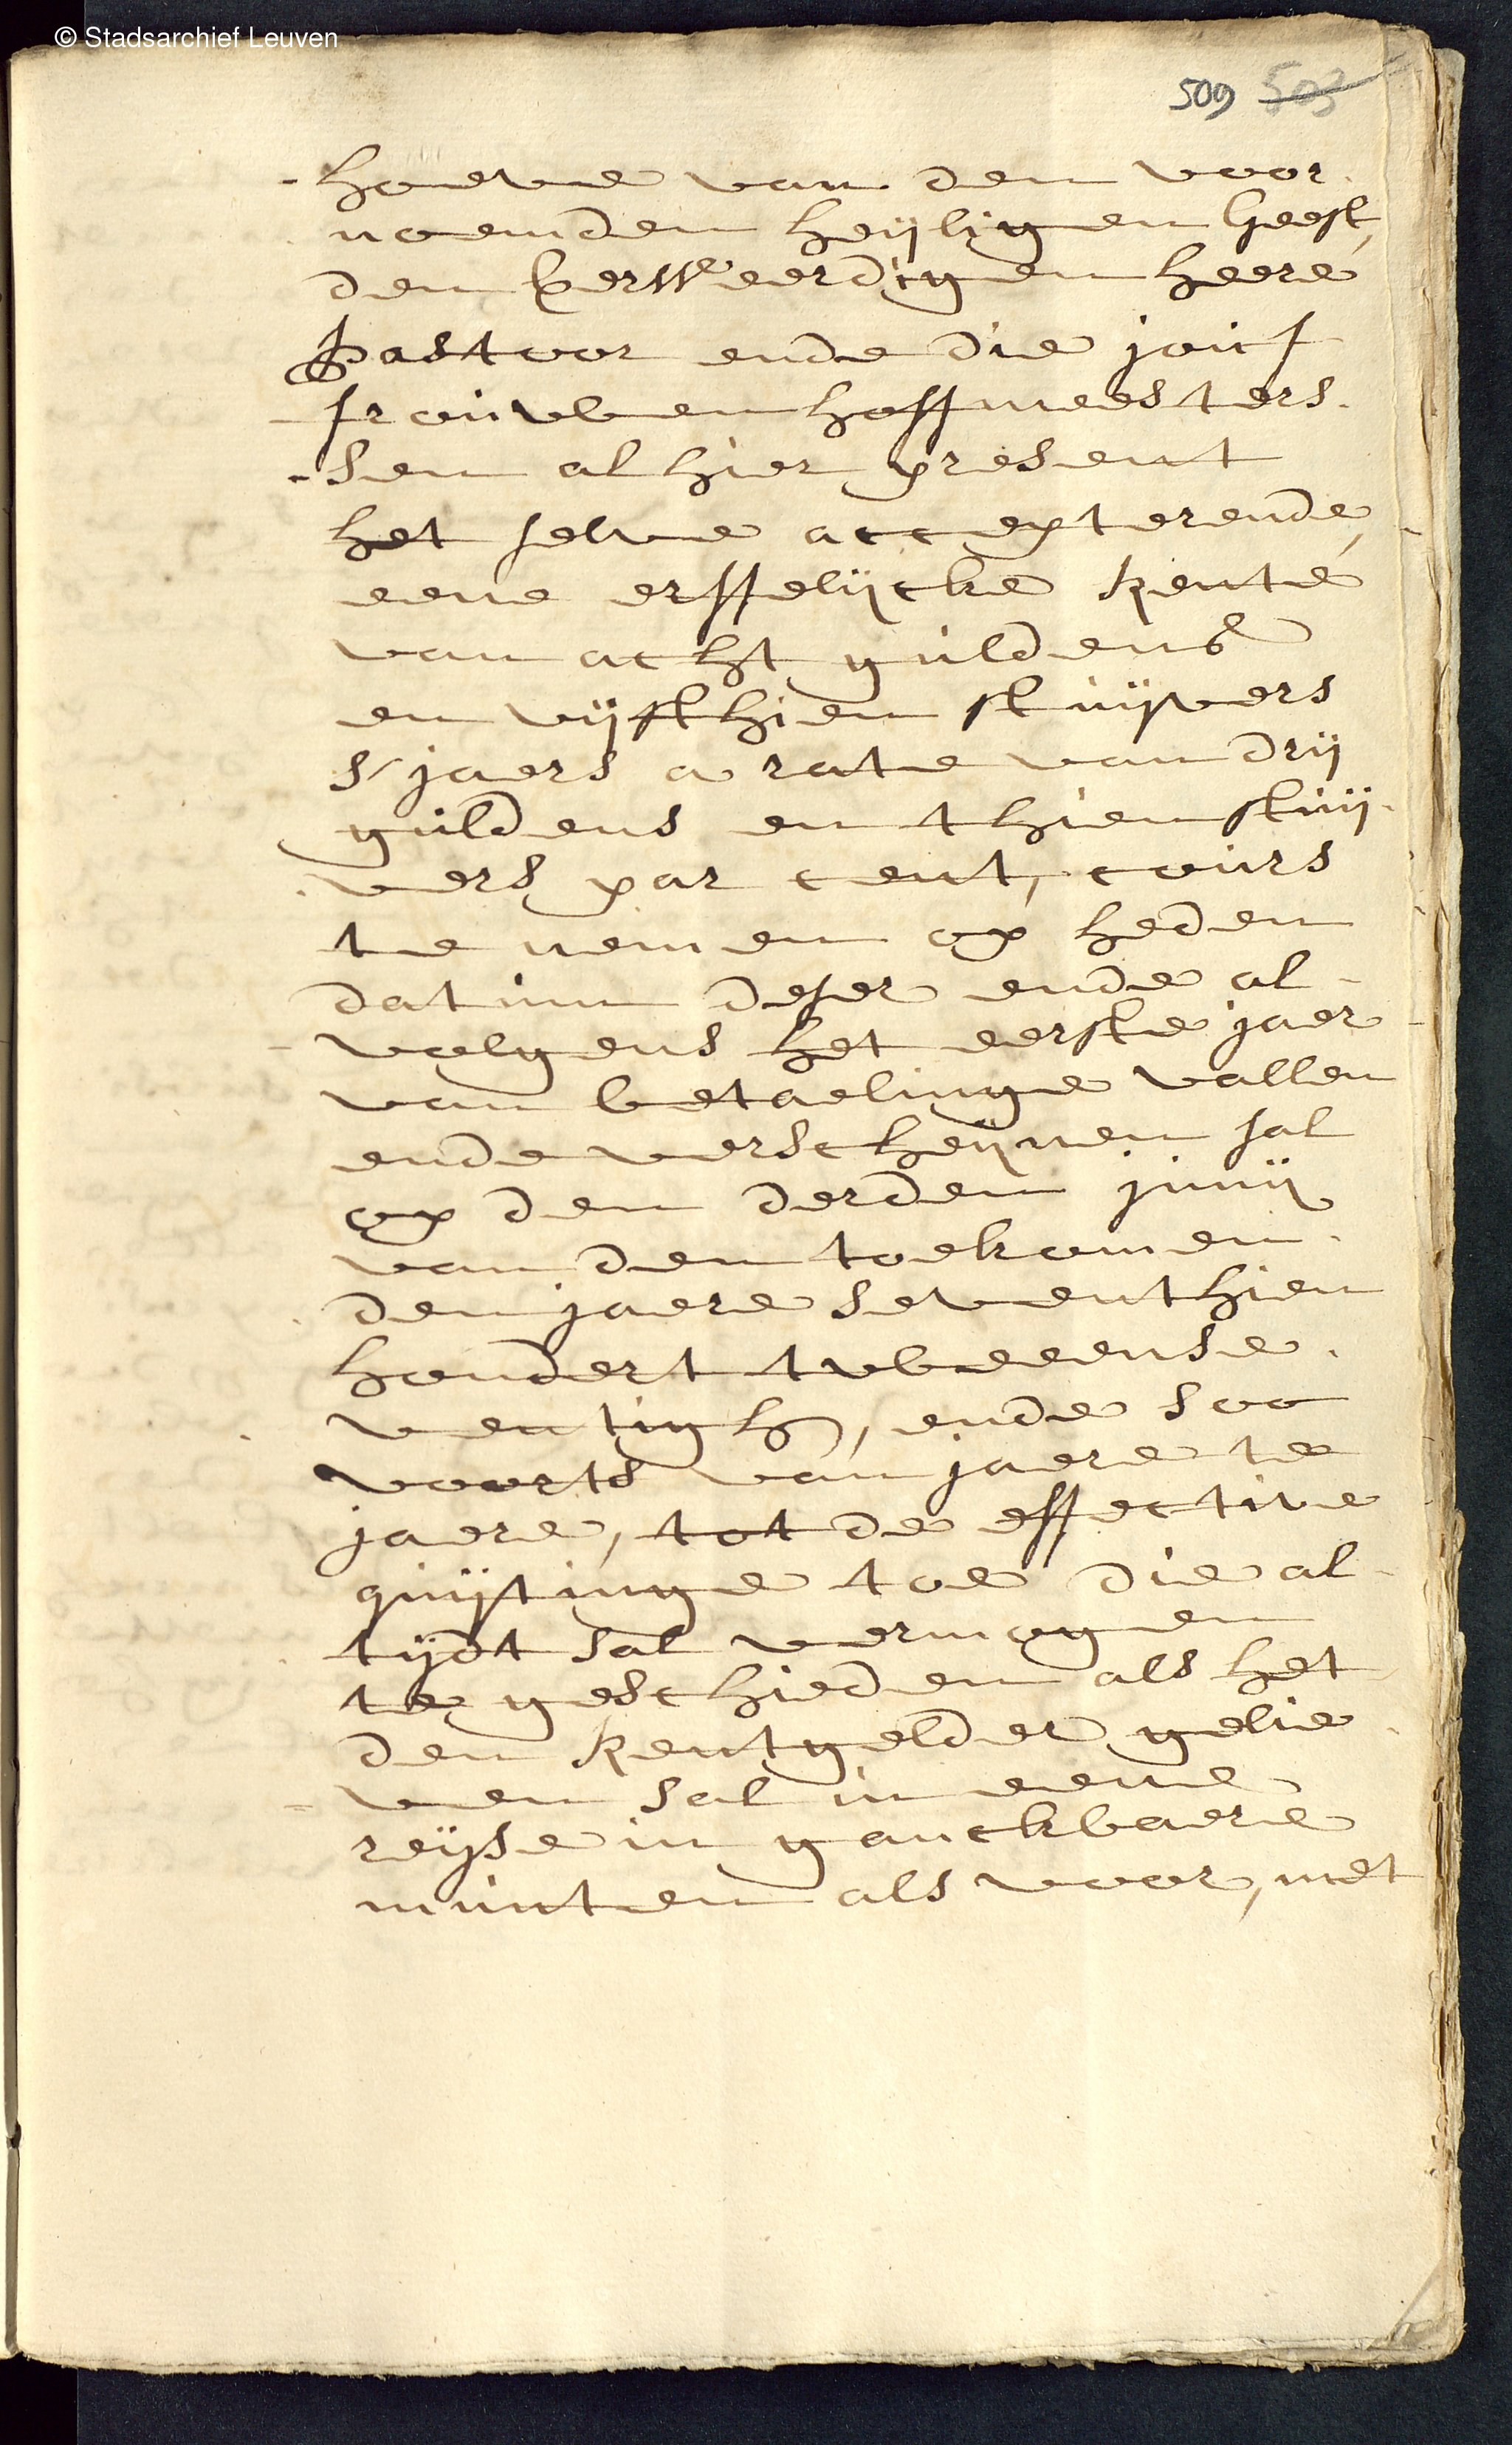 © Stadsarchief Leuven
509 503
-hoeve van den voor-
noemden heijligen Geest,
den Eerweerdigen heere
Pastoor ende die jouf-
-frouwen hoffmeesters-
-sen alhier present
het selve accepterende,
eene erffelijcke Rente
van acht guldens
en vijfthien stuijvers
s'jaers a rate van drij
guldens en thien stuij-
-vers par cent, cours
te nemen op heden
datum deser ende al-
-volgens het eerste jaer
van betaelinge vallen
ende verscheijnen sal
op den derden junij
van den toekomen-
-den jaere seventhien
hondert tweeense-
-ventigh, ende soo
voorts van jaere te
jaere, tot de effective
quijtinge toe die al-
tijdt sal vermogen
te geschieden als het
den Rentgelder gelie-
-ven sal in eene
reijse in ganckbaere
munten als voor, met